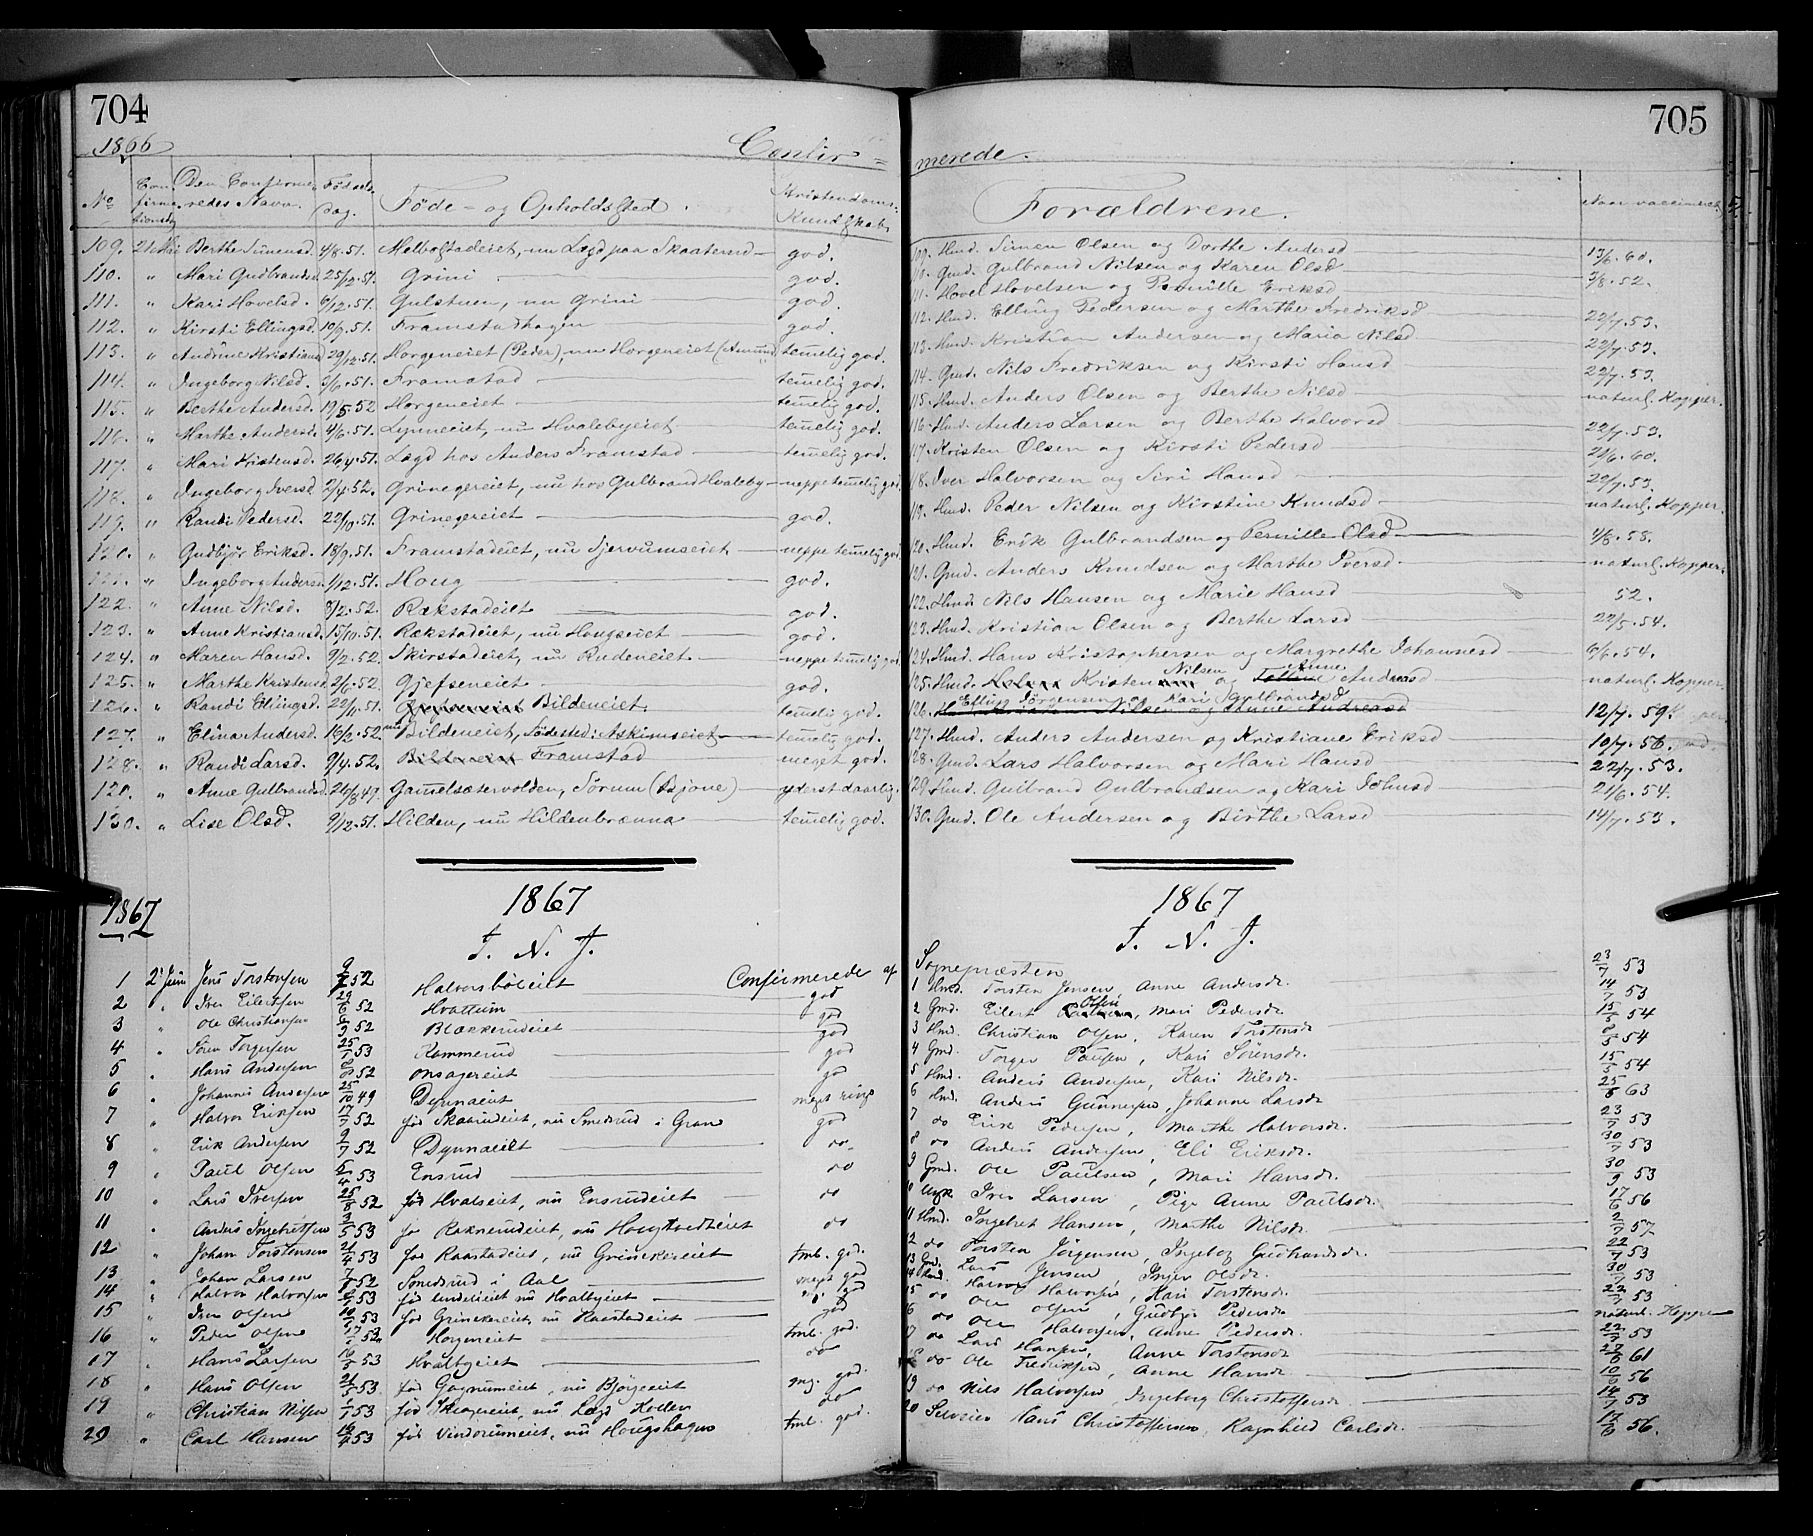 704
1866
Confir=
No
Con-firma-tionsdag
Den Confirme-redes Navn.
Fødsels-dag.
Føde- og Opholdssted.
Kristendoms-Kundskab.
109. 21 Berthe Simensd. 4/8.51. Melbostadeiet, nu Lægd paa Skaaterud god.
110. " Mari Gudbrandsd. 25/12.51. Grini god.
111. " Kari Hovelsd. 6/12.51. Gulstuen, nu Grini god.
112. " Kirsti Ellingsd. 10/9.51. Framstadhagen god.
113. " Andrine Kristiansd. 29/12.51. Horgeneiet (Peder), nu Horgeneiet (Amund) temelig god.
114. " Ingeborg Nilsd. 3/6.51. Framstad temelig god.
115. " Berthe Andersd. 19/5.52 Horgeneiet temelig god.
116. " Marthe Andersd. 4/6.51. Lynneeiet, nu Hvalebyeiet temelig god.
117. " Mari Kristensd. 26/4.51. Lægd hos Anders Framstad temelig god.
118. " Ingeborg Iversd. 2/4.52. Grinegereiet, nu hos Gulbrand Hvaleby neppe temelig god.
119. " Randi Pedersd. 22/10.51. Grinegereiet god.
120. " Gudbjør Eriksd. 18/9.51. Framstadeiet, nu Tjervumseiet neppe temelig god
121. " Ingeborg Andersd. 1/12.51. Houg god.
122. " Anne Nilsd. 8/2.52. Rækstadeiet god.
123. " Anne Kristiansd. 15/10.51. Rækstadeiet, nu Hougseiet god.
124. " Maren Hansd. 9/2.52. Skirstadeiet, nu Rudeneiet neppe temelig god.
125. " Marthe Kristensd. 2/6.52. Gjefseneiet god.
126. " Randi Ellingsd. 22/11.51. Bildeneiet. temelig god.
127. " Elina Andersd. 16/2.52. nu Bildeneiet, Fødested: Askimseiet temelig god.
128. " Randi Larsd. 9/4.52. Bildeneiet Framstad meget god.
129. " Anne Gulbrandsd. 26/8.49. Gamelsætervolden, Sørum (Asjone) yderst daarlig.
130. " Lise Olsd. 9/12.51. Hilden, nu Hildenbrænna temelig god.
1867
1867
I. N. J.
Confirmerede af
1 2 Juni Jens Torstensen 52 Halvorsböleiet god
2 " Iver Eilertsen 29/6 52 Hvattum god
3 " Ole Christiansen 52 Blækkerudeiet god
4 " Sören Torgersen 25/1 53 Kammerud god
5 " Hans Andersen 52 Onsagereiet god
6 " Johannes Andersen 25/10 49 Dynnaeiet meget ringe
7 " Halvor Eriksen 17/7 52 fød Skaarudeiet, nu Smedsrud i Gran god
8 " Erik Andersen 9/7 52 Dynnaeiet do
9 " Paul Olsen 5/4 53 Ensrud do
10 " Lars Iversen 25/8 52 fød Hvalseiet, nu Ensrudeiet do
11 " Anders Ingebretsen 3/5 53 fø Raknerudeiet, nu Hougtvedteiet do
12 " Johan Torstensen 21/4 53 fød Raastadeiet, nu Grinekereiet tml. god.
13 " Johan Larsen 52 Smedsrud i Aal meget god
14 " Halvor Halvorsen 53 fød Undelieiet nu Hvalbyeiet god
15 " Iver Olsen 53 fød Grinekereiet, nu Raastadeiet god
16 " Peder Olsen 52 Horgeneiet tml. god.
17 " Hans Larsen 16/3 53 Hvalbyeiet do
18 " Hans Olsen 21/5 53 fød Gagnumeiet, nu Bjørgeeiet mg. god.
19 " Christian Nilsen 53 fød Skiagereiet, nu Lægd Hvilen do
20 " Carl Hansen 53 fød Vindorumeiet, nu Hougshagen tml. god.
705
merede.
Forældrene.
Naar vaccineret
109. Hmd. Simen Olsen og Dorthe Andersd 17/6.60.
110. Gmd. Gulbrand Nilsen og Karen Olsd 3/8.52.
111. Hovel Hovelsen og Pernille Eriksd
112. Hmd. Elling Pedersen og Marthe Fredriksd 22/7.53.
113. Hmd. Kristian Andersen og Maria Nilsd 22/7.53.
114. Gmd. Nils Fredriksen og Kirsti Hansd 22/7.53.
115. Hmd. Anders Olsen og Berthe Nilsd naturl. Kopper.
116. Hmd. Anders Larsen og Berthe Halvorsd 22/7.53.
117. Kristen Olsen og Kirsti Pedersd 21/6.60.
118. Iver Halvorsen og Siri Hansd 22/7.53.
119. Hmd. Peder Nilsen og Kirstine Knudsd naturl. Kopper.
120. Hmd. Erik Gulbrandsen og Pernille Olsd 4/8.58.
121. Gmd. Anders Knudsen og Marthe Iversd naturl. Kopper.
122. Hmd. Nils Hansen og Marie Hansd 52.
123. Hmd. Kristian Olsen og Berthe Larsd 22/5.54.
124. Hmd. Hans Kristophersen og Margrethe Johannesd 6/6.54.
125. Hmd. Kristen Nilsen og Anne Andreasd naturl. Kopper.
126. Elling Jörgensen og Kari Gulbrandsd 12/7.59
127. Hmd. Anders Andersen og Kristiane Eriksd 10/7.56.
128. Gmd. Lars Halvorsen og Mari Hansd 22/7.53.
129. Hmd. Gulbrand Gulbrandsen og Kari Johnsd 21/6.54.
130. Gmd. Ole Andersen og Birthe Larsd 14/7.53.
1867
I. N. J.
Sognepræsten
1 Hmd. Torsten Jensen, Anne Andersdr. 23/7 53
2 Gmd. Eilert Olsen, Mari Pedersdr. 14/7 53
3 Hmd. Christian Olsen, Karen Torstensdr 15/5 54
4 Gmd. Torger Paulsen, Kari Sörensdr. 54
5 Hmd. Anders Andersen, Kari Nilsdr. 15/5 54
6 Hmd. Anders Gunnersen, Johanne Larsdr 25/6 63
7 do Erik Pedersen, Marthe Halvorsdr. 23/7 53
8 do Anders Andersen, Eli Eriksdr. 30/7 53
9 Gmd. Ole Paulsen, Mari Hansdr. 30/9 53
10 Ugk Iver Larsen, Pige Anne Paulsdr. 17/6 56
11 Hmd. Ingebret Hansen, Marthe Nilsdr. 57
12 do Torsten Jörgensen, Ingebog Gudbrandsdr. 22/7 53
13 Gmd. Lars Jensen, Inger Olsdr. 30/7 53
14 Hmd. Halvor Halvorsen, Kari Torstensdr. 22/7 53
15 do Ole Olsen, Gudbjör Pedersdr naturl. Kopper
16 do Ole Halvorsen, Anne Pedersdr. 22/7 53
17 do Lars Hansen, Anne Torstensdr 61
18 do Ole Fredriksen, Anne Hansdr. 56
19 do Nils Halvorsen, Ingeborg Christoffersdr. 14/7 53
20 Hans Christoffersen, Ragnhild Carlsdr. 56.